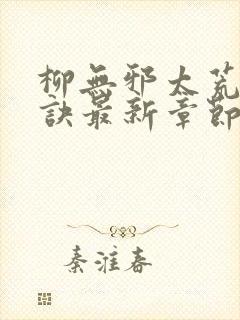 柳無邪太荒
訣最新章節
秦淮春